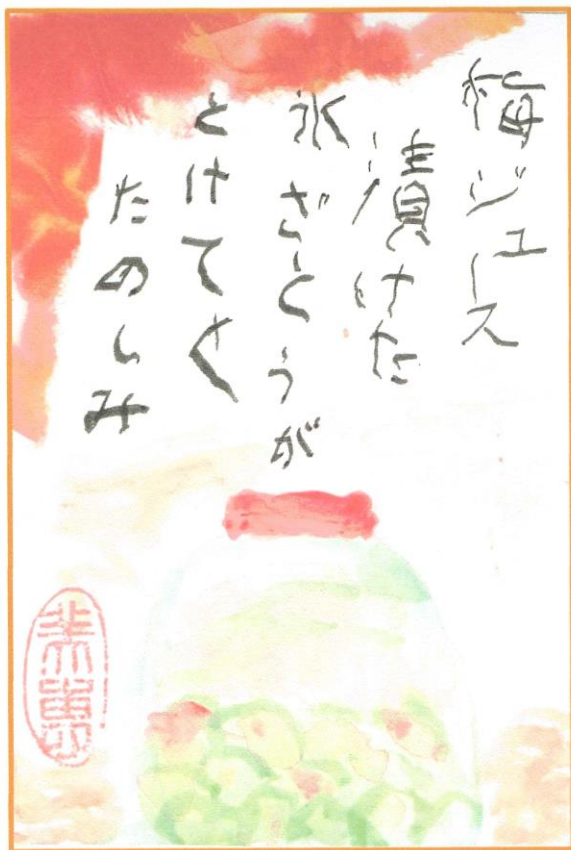 梅ジュース
漬けた
氷ざとうが
とけてく
たのしみ